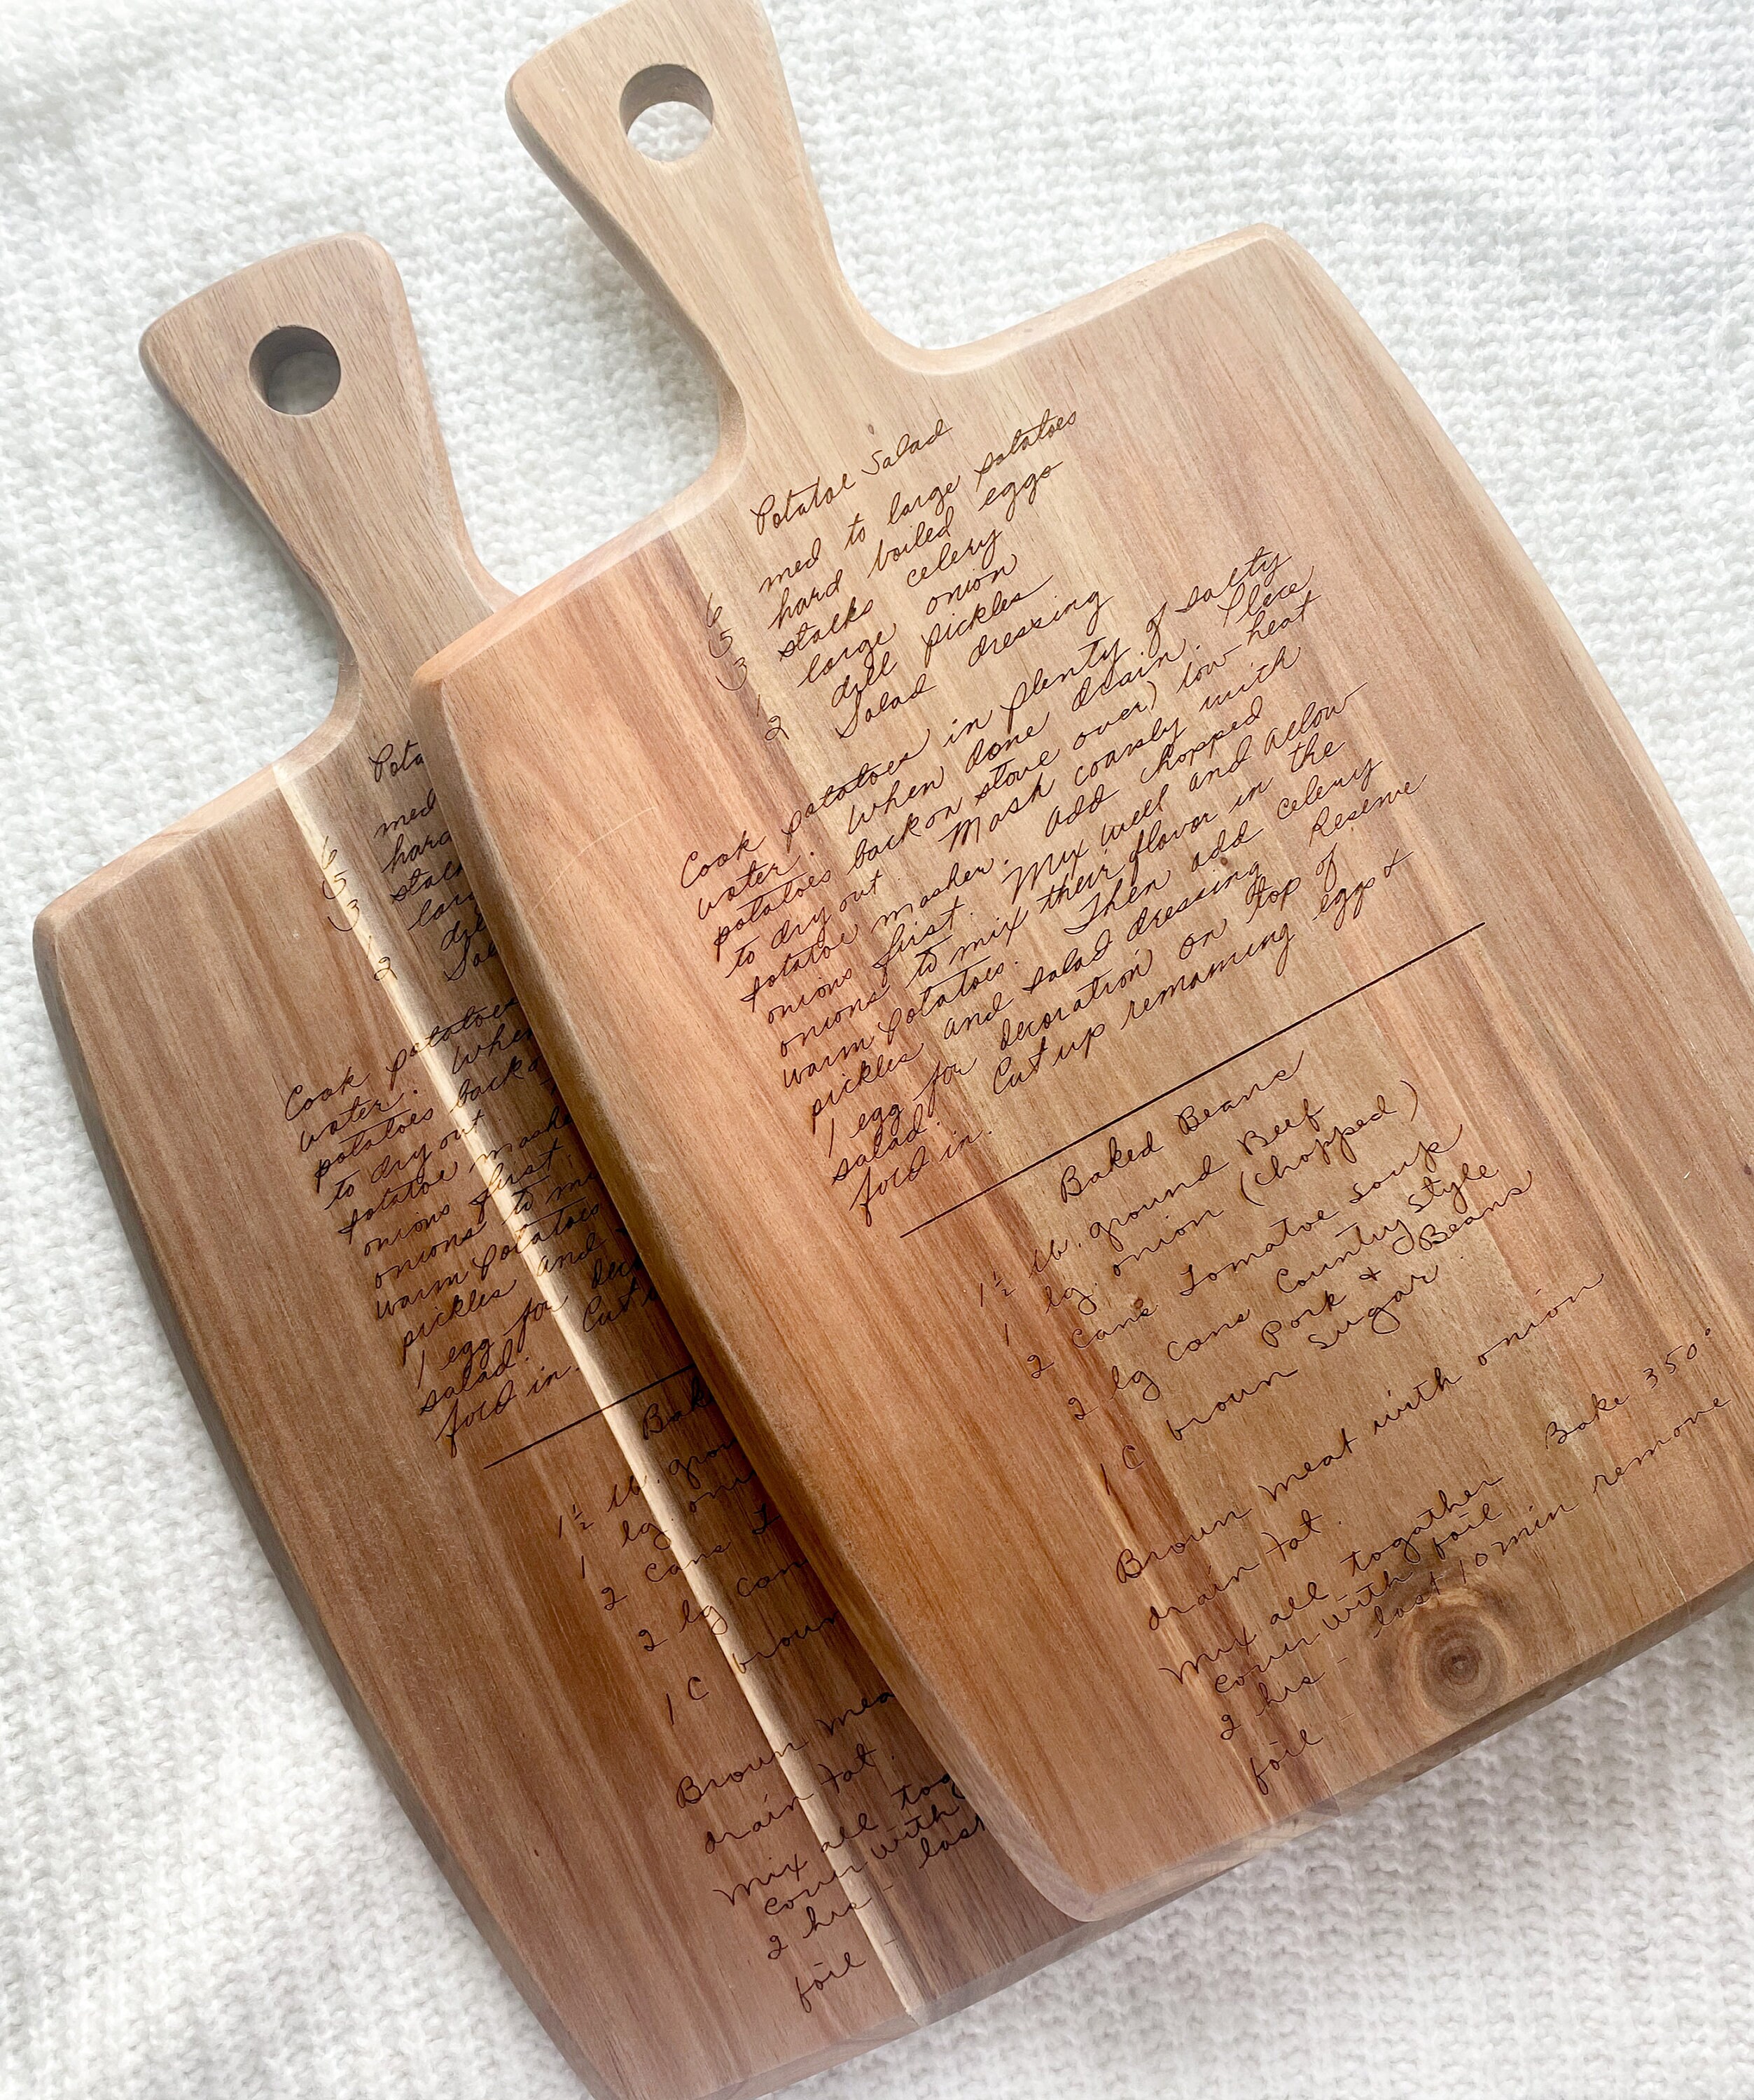 Potatoe Salad
6 med to large potatoes
5 hard boiled eggs
3 stalks celery
1 large onion
2 dill pickles
Salad dressing
Cook potatoes in plenty of salty
water. When done drain. Place
potatoes back on stove over) low heat
to dry out. Mash coarsly with
potatoe masher. Add chopped
onions first. Mix well and allow
onions to mix their flavor in the
warm potatoes. Then add celery
pickles and salad dressing. Reserve
1 egg for decoration on top of
salad. Cut up remaining eggs &
fold in.
Baked Beans
1½ lb. ground Beef
1 lg. onion (chopped)
2 cans Tomatoe Soup
2 lg cans Country Style
Pork & Beans
1 C brown sugar.
Brown meat with onion
drain fat.
Mix all togather Bake 350°
cover with foil
2 hrs - last 10 min remove
foil -
Pota
6 med
5 hard
3 stalk
1 lar
2 dil
Sal
Cook potatoes
water. When
potatoes back o
to dry out.
potatoe mashe
onions first.
onions to mi
warm potatoes
pickles and
1 egg for deco
salad. Cut u
fold in.
Bak
1½ lb. grou
1 lg. oni
2 cans T
2 lg can
1 C brown
Brown mea
drain fat.
Mix all tog
cover with
2 hrs - last
foil -